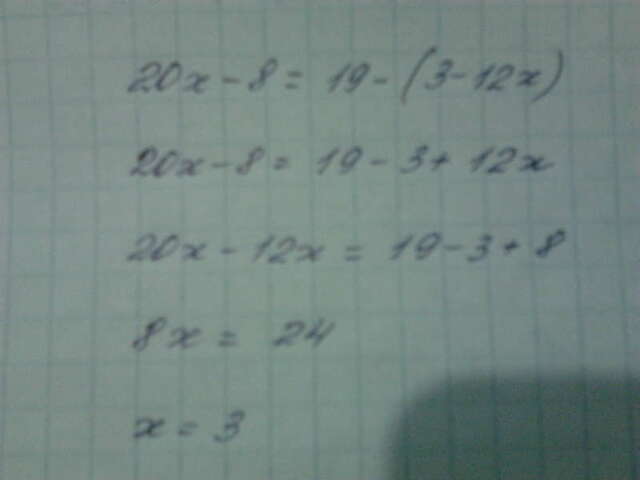 20x - 8 = 19 - (3 - 12x)
20x - 8 = 19 - 3 + 12x
20x - 12x = 19 - 3 + 8
8x = 24
x = 3